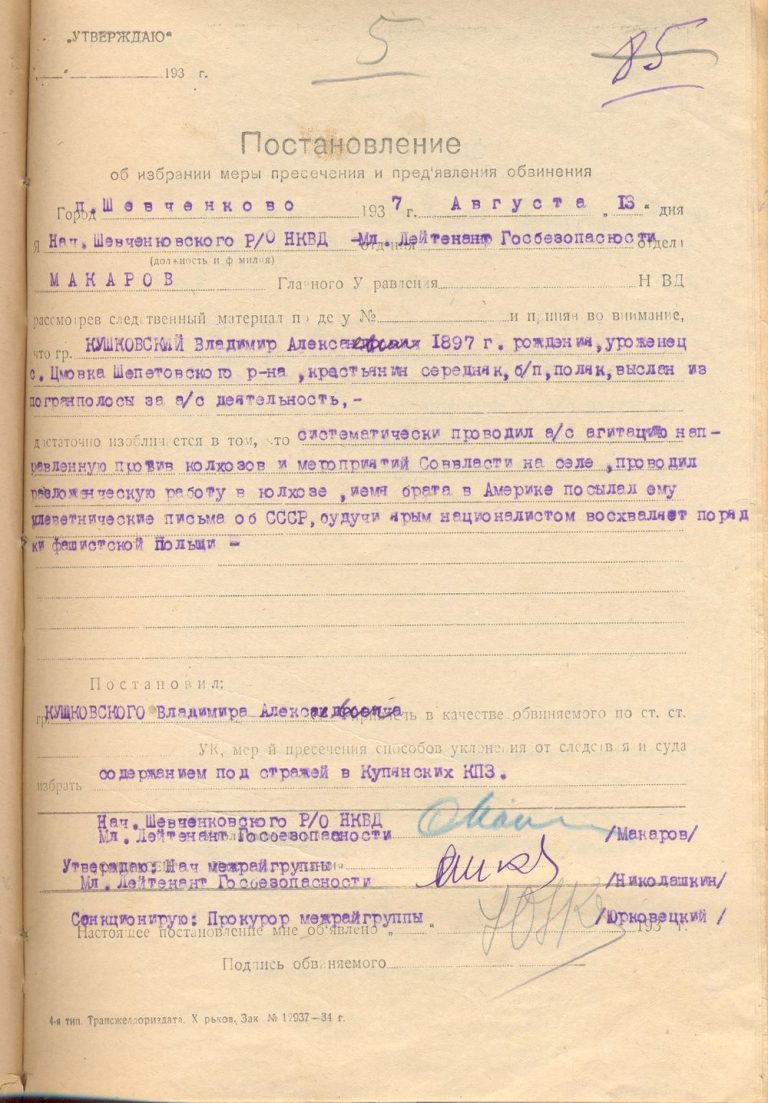 „УТВЕРЖДАЮ“
5
85
„ “ 193 г.
Постановление
об избрании меры пресечения и пред'явления обвинения
Город п. Шевченково 1937 г. Августа „13“ дня
Я Нач. Шевченковского Р/О НКВД -Мл. Лейтенант Госбезопасности отдела
(должность и ф милия)
МАКАРОВ Главного У равления Н ВД
рассмотрев следственный материал по де у № и приняв во внимание,
что гр. КУШКОВСКИЙ Владимир 1897 г. рождения, уроженец
с. Цмовка Шепетовского р-на ,крастьянин середняк, б/п, поляк, выслан из
погранполосы за а/с деятельность,-
достаточно изобличается в том, что систематически проводил а/с агитацию нап-
равленную против колхозов и мероприятий Соввласти на селе ,проводил
разложенческую работу в юлхозе ,иемя брата в Америке посылал ему
клеветнические письма об СССР, будучи ярым националистом восхваляет поряд
ки фашистской Польщи -
Постановил:
гр. КУШКОВСКОГО Владимира в качестве обвиняемого по ст. ст.
УК, мер й пресечения способов уклонения от следств я и суда
избрать содержанием под стражей в Купянских КПЗ.
Нач. Шевченковского Р/О НКВД
Мл. Лейтенант Госбезопасности /Макаров/
Утверждаю: Нач межрайгруппы
Мл. Лейтенант Госбезопасности /Николашкин/
Санкционирую: Прокурор межрайгруппы /Юрковецкий /
Настоящее постановление мне об'явлено „ “ 193 г.
Подпись обвиняемого
4-я тип. Трансжелдориздата. Х рьков. Зак. № 12937—34 г.